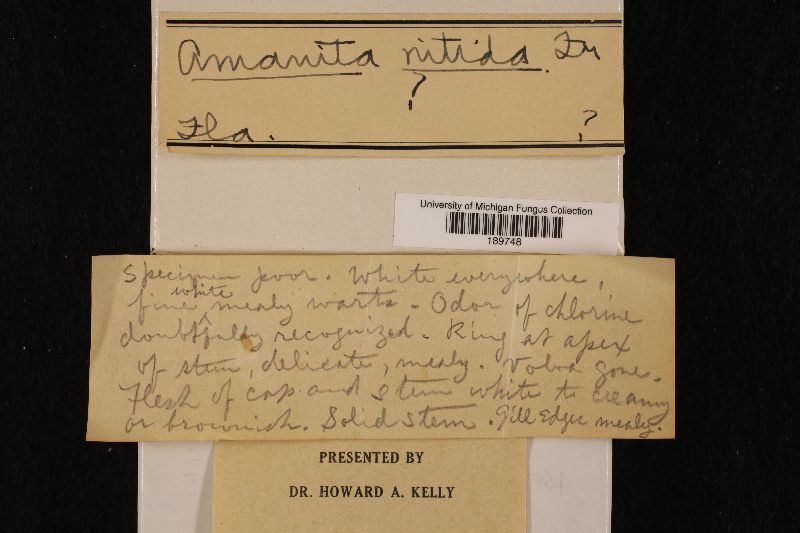 Amanita nitida Fr
?
Fla. ?
University of Michigan Fungus Collection
189748
Specimen poor. White everywhere,
fine white mealy warts. Odor of chlorine
doubtfully recognized. Ring at apex
of stem, delicate, mealy. Volva gone.
Flesh of cap and stem white to creamy
or brownish. Solid stem. Gill Edges mealy.
PRESENTED BY
DR. HOWARD A. KELLY